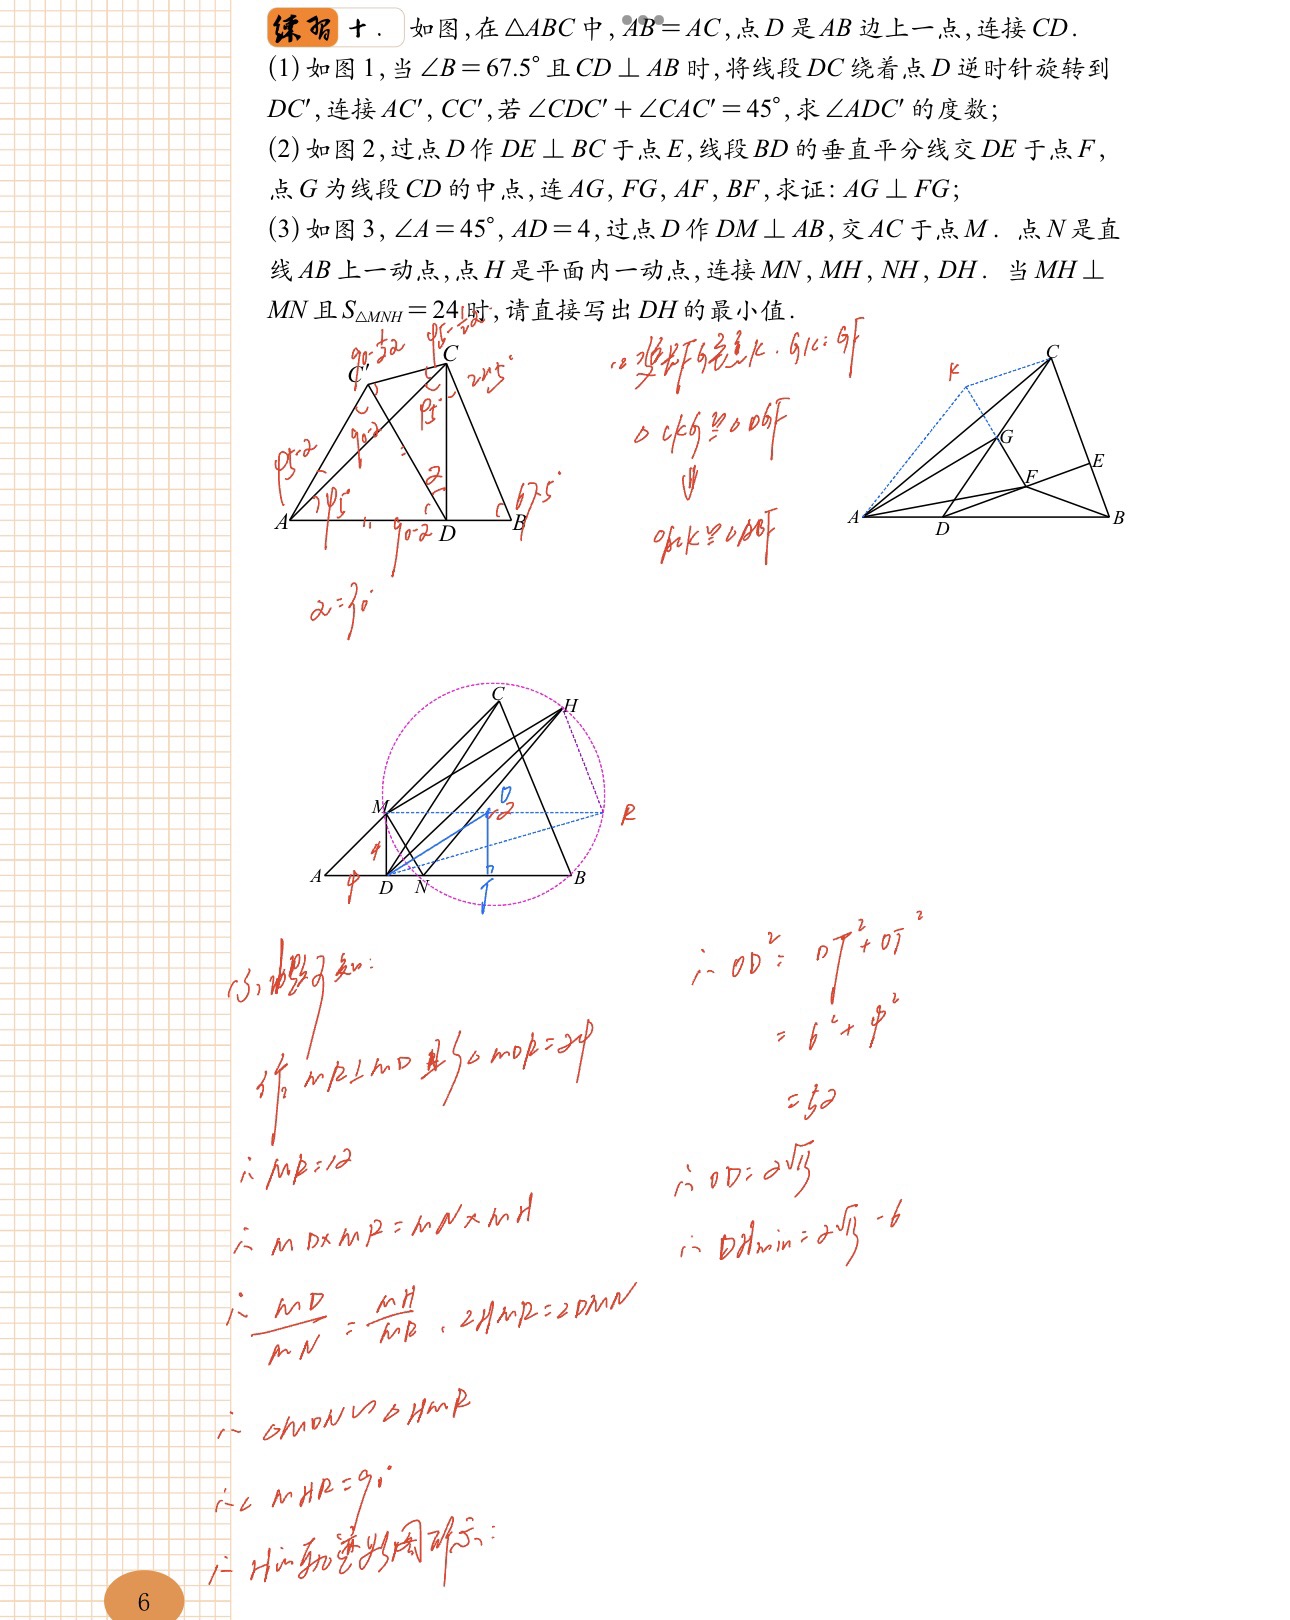 练习十． 如图,在△ABC中, AB=AC,点D是AB边上一点,连接CD．
(1)如图1,当∠B=67.5°且CD⊥AB时,将线段DC绕着点D逆时针旋转到
DC′,连接AC′, CC′,若∠CDC′+∠CAC′=45°,求∠ADC′的度数;
(2)如图2,过点D作DE⊥BC于点E,线段BD的垂直平分线交DE于点F,
点G为线段CD的中点,连AG, FG, AF, BF,求证: AG⊥FG;
(3)如图3, ∠A=45°, AD=4,过点D作DM⊥AB,交AC于点M． 点N是直
线AB上一动点,点H是平面内一动点,连接MN, MH, NH, DH． 当MH⊥
MN且S△MNH=24时,请直接写出DH的最小值．
90-½α 45-½α
C′ C
22.5°
45°
45-α 90-α
α
45° 67.5°
A 90-α D B
α=30°
FG至点K. GK=GF
△CKG≌△DGF
⇓
△ACK≌△ABF
K C
G
F E
A D B
C H
M O R
4
A 4 D N T B
(3)
作MR⊥MD且S△MDR=24
∴ MR=12
∴ MD×MR=MN×MH
∴ MD/MN = MH/MR . ∠HMR=∠DMN
∴ △MDN∽△HMR
∴∠MHR=90°
∴ H的轨迹如图所示:
∴ OD²= DT²+OT²
= 6²+4²
=52
∴ OD=2√13
∴ DHmin=2√13 -6
6